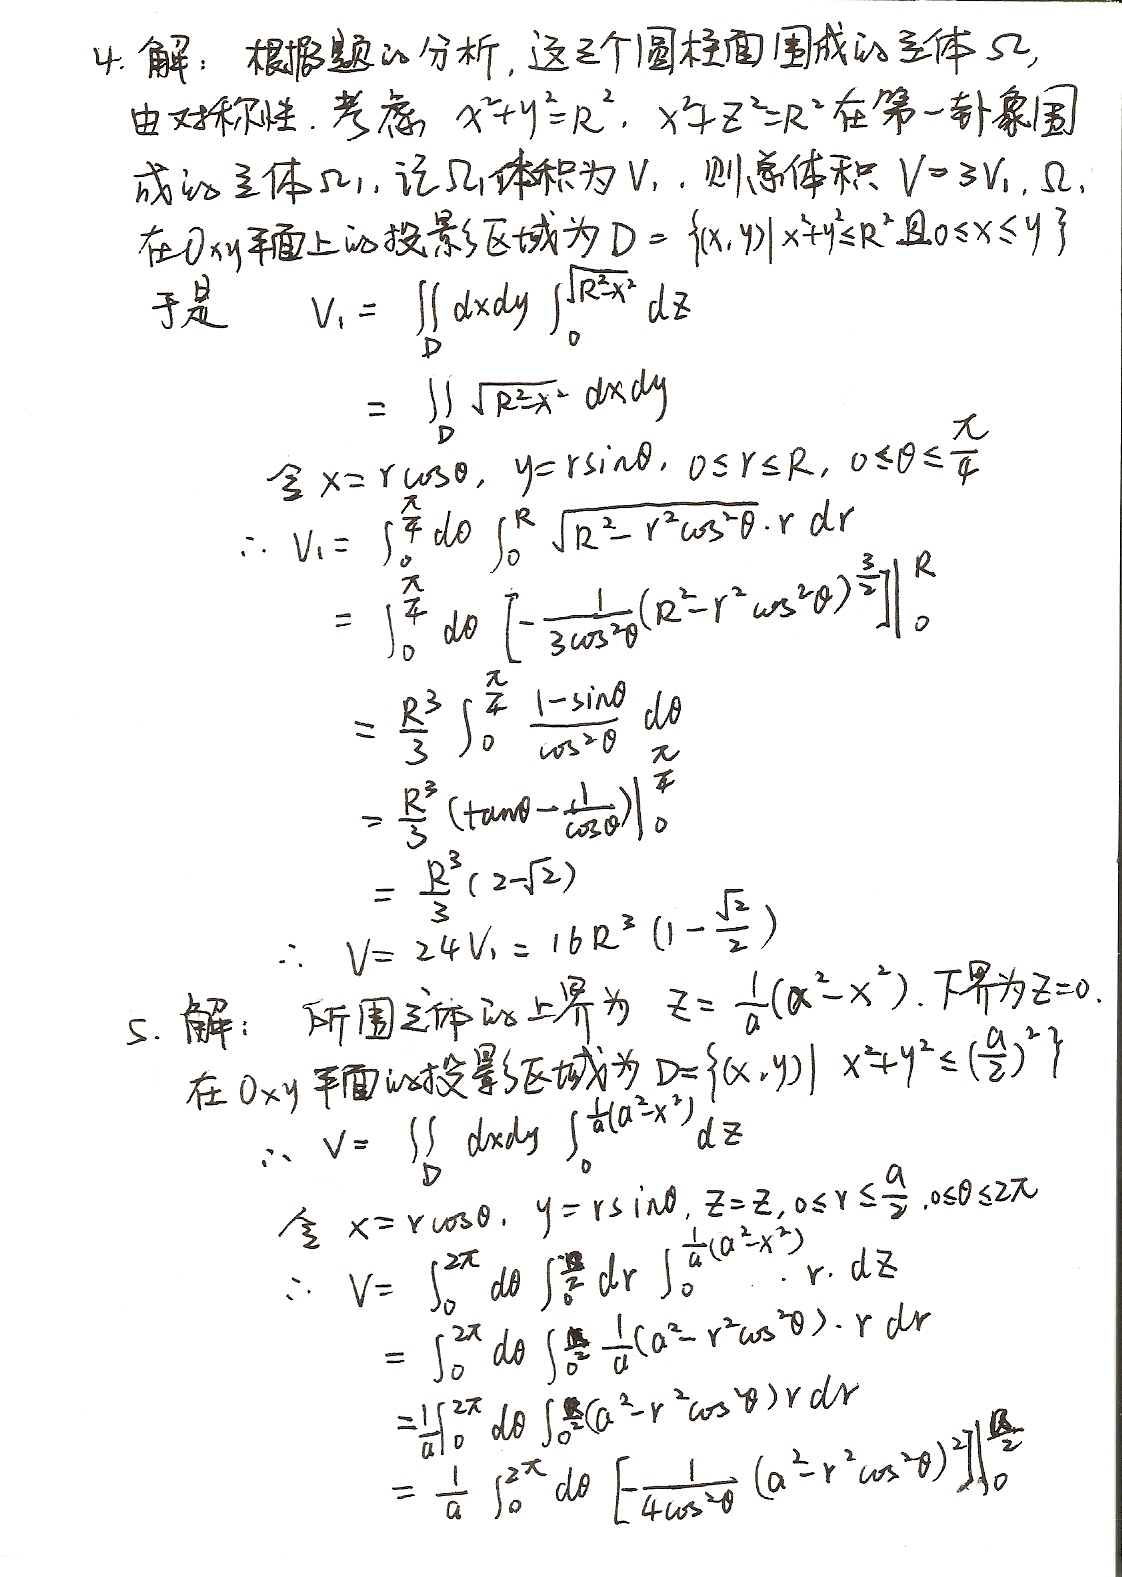 4. 解: 根据题的分析, 这三个圆柱面围成的立体 Ω,
由对称性. 考虑 x²+y²=R², x²+z²=R² 在第一卦象围
成的立体Ω₁, 记Ω₁体积为 V₁. 则总体积 V=3V₁, Ω₁
在Oxy平面上的投影区域为 D = {(x,y)| x²+y²≤R² 且0≤x≤y}
于是 V₁ = ∬_D dxdy ∫_0^{√(R²-x²)} dz
= ∬_D √(R²-x²) dxdy
令 x= r cosθ, y= r sinθ, 0≤r≤R, 0≤θ≤π/4
∴ V₁= ∫_0^{π/4} dθ ∫_0^R √(R²-r²cos²θ)·r dr
= ∫_0^{π/4} dθ [-1/(3cos²θ) (R²-r²cos²θ)^{3/2}]|_0^R
= R³/3 ∫_0^{π/4} (1-sinθ)/cos²θ dθ
= R³/3 (tanθ - 1/cosθ)|_0^{π/4}
= R³/3 (2-√2)
∴ V= 24V₁ = 16R³ (1-√2/2)
5. 解: 所围立体的上界为 z= 1/a (a²-x²). 下界为z=0.
在Oxy平面的投影区域为 D={(x,y)| x²+y²≤(a/2)²}
∴ V= ∬_D dxdy ∫_0^{1/a(a²-x²)} dz
令 x= r cosθ, y= r sinθ, z=z, 0≤r≤a/2, 0≤θ≤2π
∴ V= ∫_0^{2π} dθ ∫_0^{a/2} dr ∫_0^{1/a(a²-x²)} · r · dz
= ∫_0^{2π} dθ ∫_0^{a/2} 1/a (a²-r²cos²θ)· r dr
= 1/a ∫_0^{2π} dθ ∫_0^{a/2} (a²-r²cos²θ) r dr
= 1/a ∫_0^{2π} dθ [-1/(4cos²θ) (a²-r²cos²θ)²]|_0^{a/2}